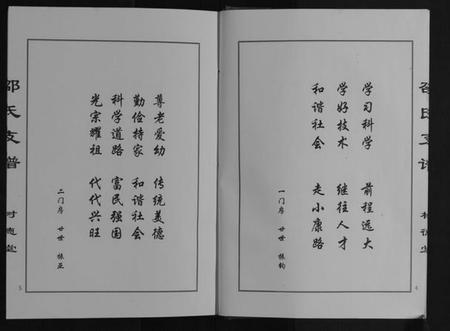 学习科学 前程远大
学好技术 继往人才
和谐社会 走小康路
一门序 廿世 振钧
4
尊老爱幼 传统美德
勤俭持家 和谐社会
科学道路 富民强国
光宗耀祖 代代兴旺
二门序 廿世 振亚
邵氏支谱
5